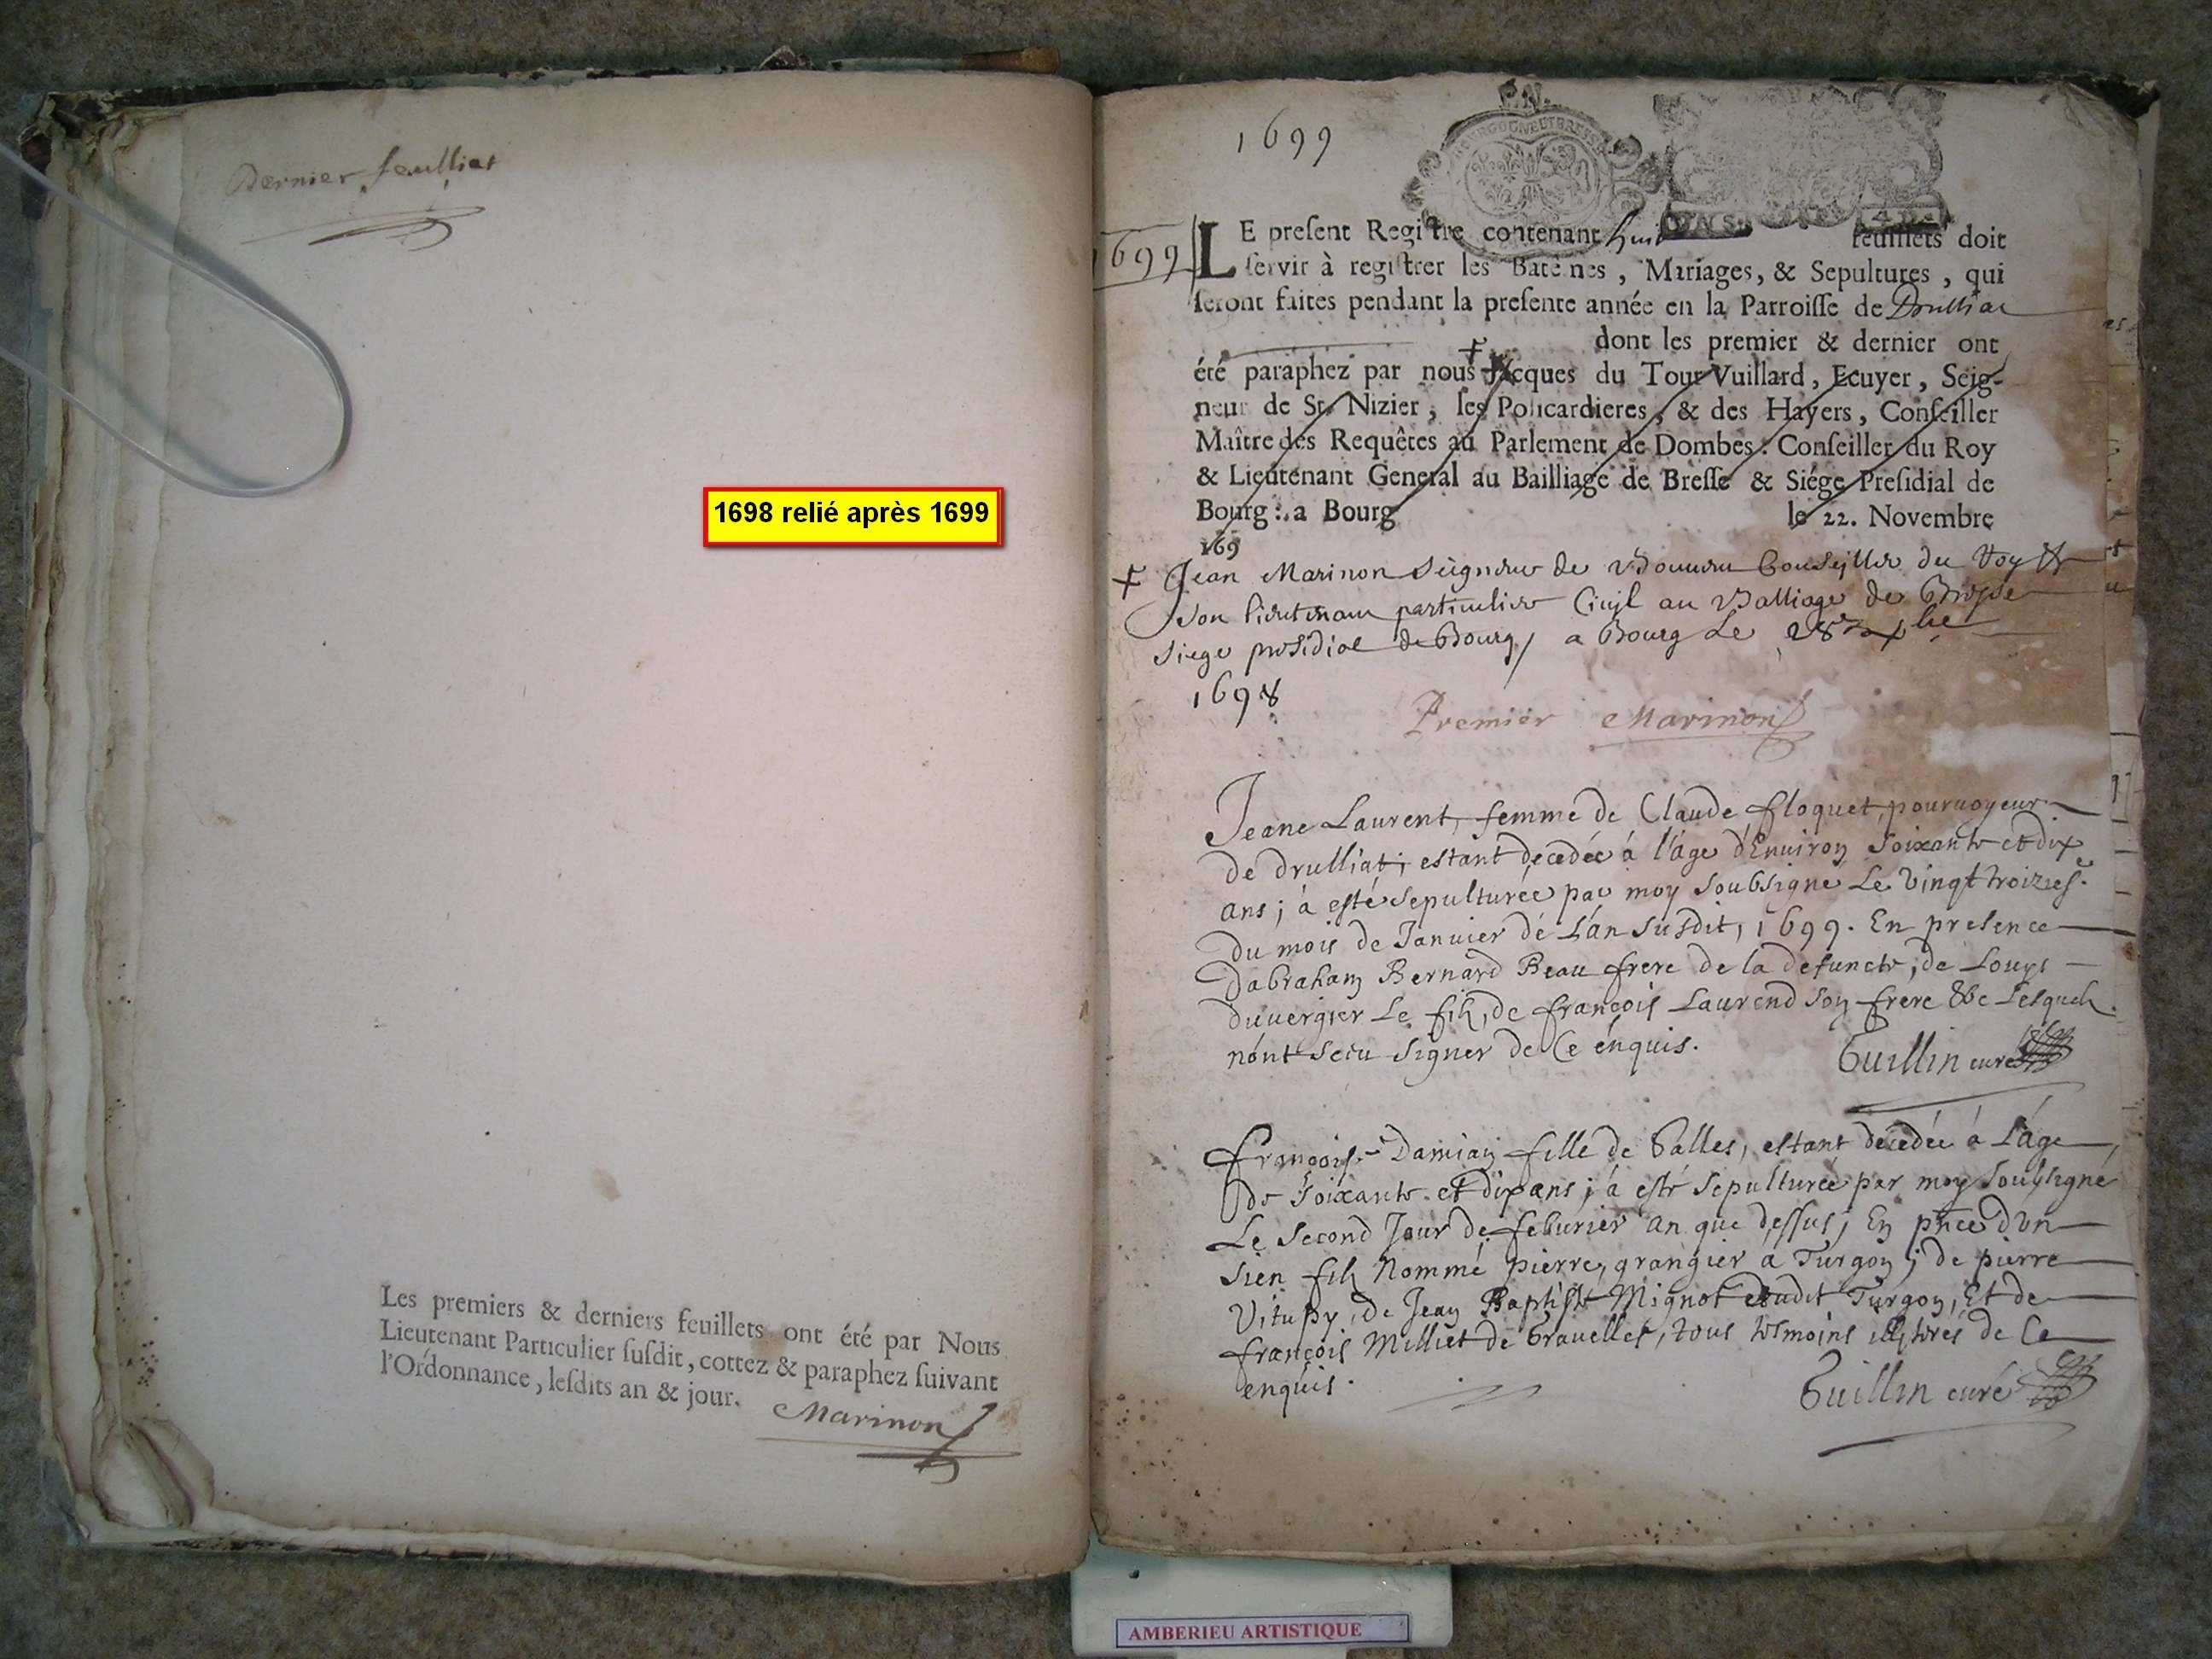 Dernier feulliet
1698 relié après 1699
Les premiers & derniers feuillets ont été par Nous
Lieutenant Particulier susdit, cottez & paraphez suivant
l'Ordonnance, lesdits an & jour.
Marinon
1699
1699
LE present Registre contenant huit feuillets doit
servir à registrer les Batêmes, Mariages, & Sepultures, qui
seront faites pendant la presente année en la Parroisse de Drulliat
dont les premier & dernier ont
été paraphez par nous Jacques du Tour Vuillard, Ecuyer, Seig-
neur de St. Nizier, les Policardieres, & des Hayers, Conseiller
Maître des Requêtes au Parlement de Dombes: Conseiller du Roy
& Lieutenant General au Bailliage de Bresse & Siége Presidial de
Bourg: a Bourg le 22. Novembre
169
Jean Marinon Seigneur de Conseiller du Roy &
son lieutenant particulier Civil au Balliage de Bresse
siege presidial de Bourg, a Bourg Le 28e xbre
1698
Premier Marinon
Jeane Laurent, femme de Claude floquet, pouruoyeur
de drulliat; estant decedée à l'âge d'Enuiron Soixante et dix
ans; à esté sepulturée par moy soubsigné Le Vingt troizies.e
du mois de Januier de L'an susdit, 1699. En presence
d'abraham Bernard Beau frere de la defuncte, de Louys
duuergier Le fils, de françois Laurend son frere &c Lesquels
n'ont sceu signer de Ce énquis.
Guillin curé
françoise Damian fille de Salles, estant decedée à L'âge
de soixante et dix ans; à esté sepulturée par moy soubsigné
Le second Jour de feburier an que dessus; En pnce d'vn
sien fils Nommé pierre, grangier a Turgon; de pierre
Vitupy, de Jean Baptiste Mignot dudit Turgon, Et de
françois Milliet de Grauelles, tous tesmoins illiterés de Ce
enquis.
Guillin curé
AMBERIEU ARTISTIQUE